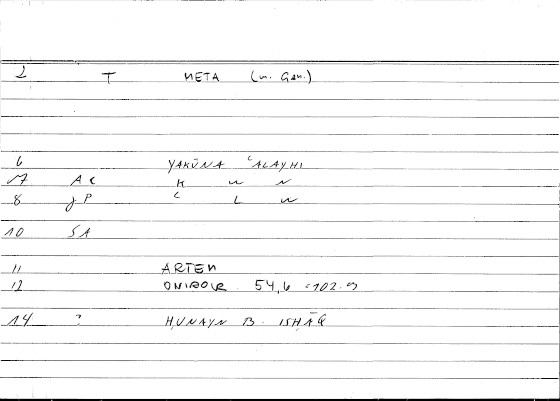 2 T META (m. Gen.)
6 YAKŪNA ʿALAYHI
17 AC K W N
8 JP ʿ L W
10 SA
11 ARTEM
12 ONIROCR. 54,6
14 ? ḤUNAYN B. ISḤĀQ